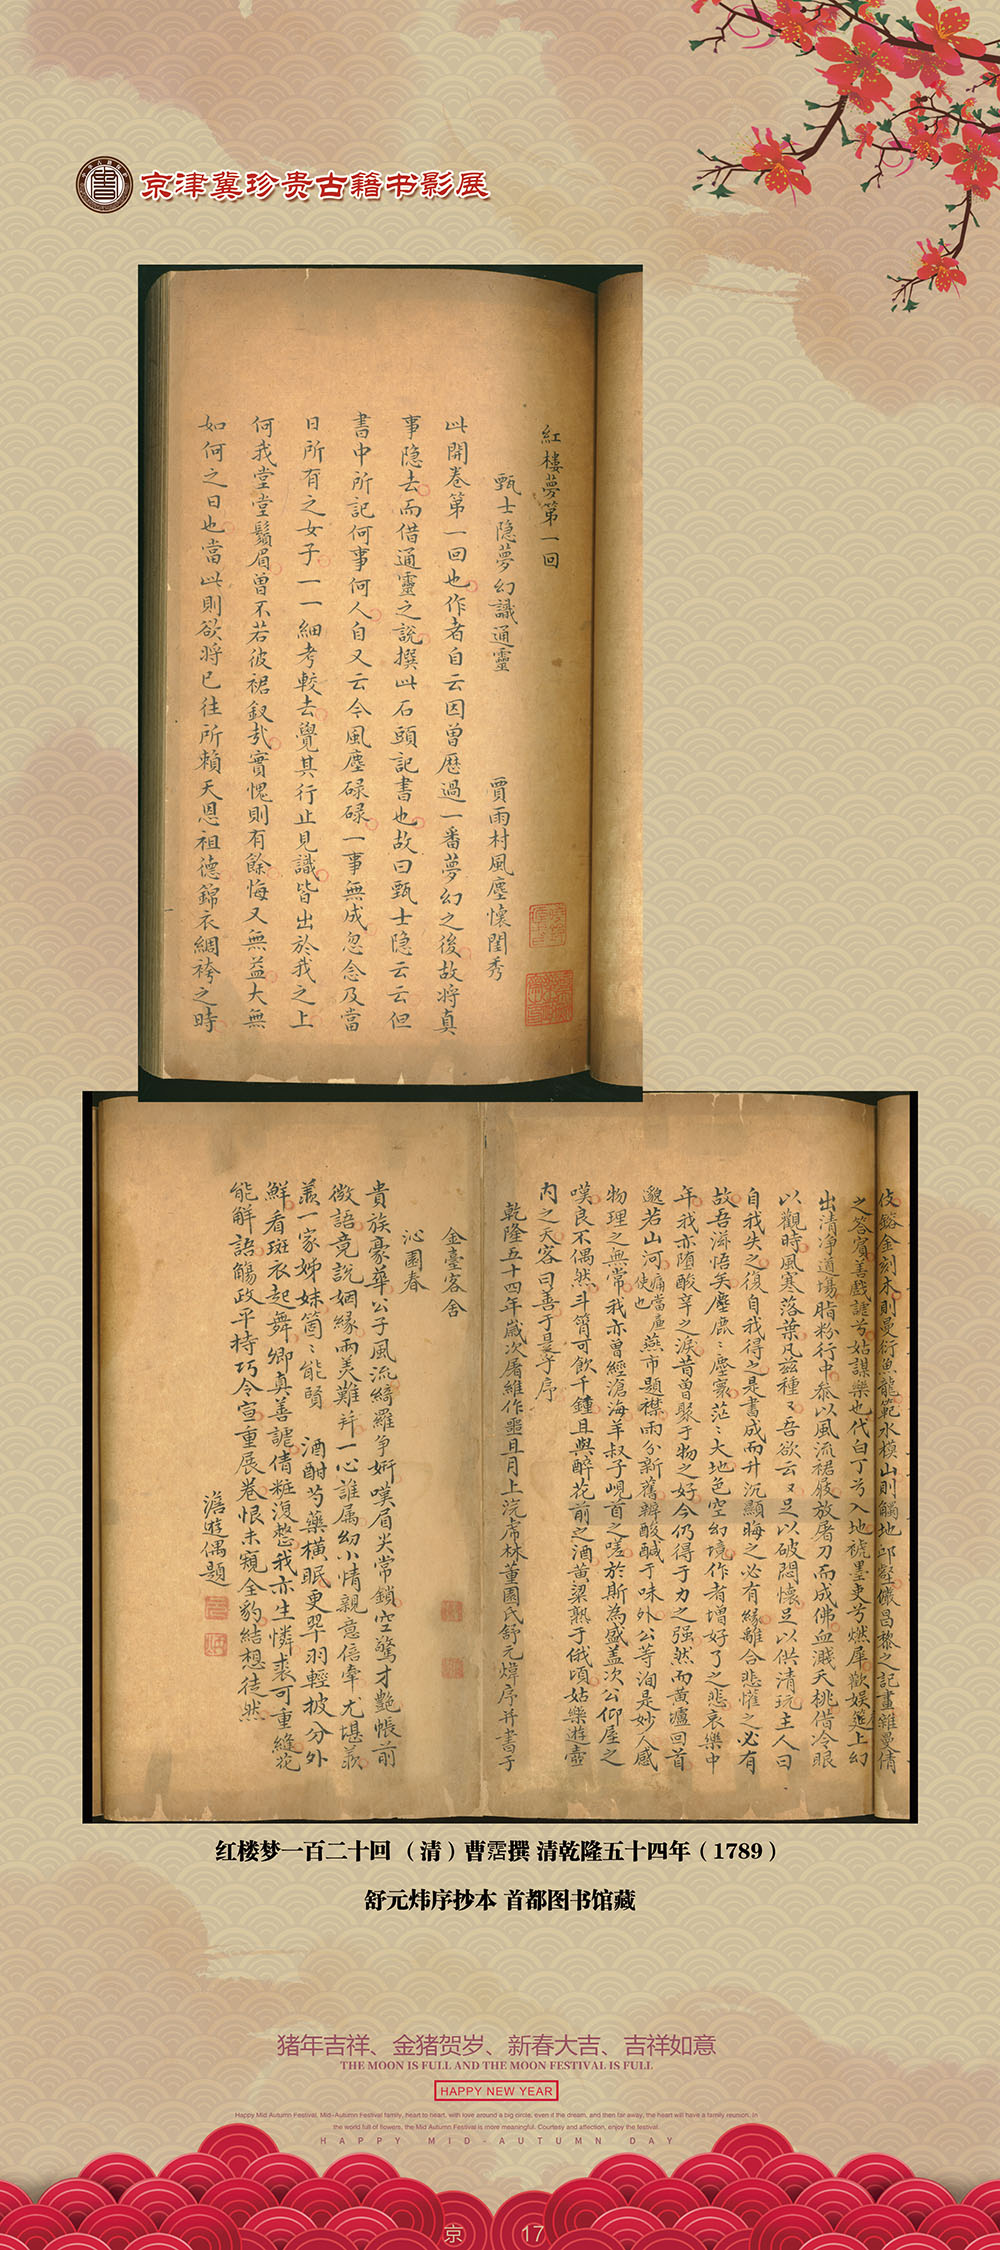 京津冀珍贵古籍书影展
紅樓夢第一回
甄士隐夢幻識通靈 賈雨村風塵懷閨秀
此開卷第一回也作者自云因曾歷過一番夢幻之後故将真
事隐去而借通靈之說撰此石頭記書也故曰甄士隐云云但
書中所記何事何人自又云今風塵碌碌一事無成忽念及當
日所有之女子一一細考較去覺其行止見識皆出於我之上
何我堂堂鬚眉曾不若彼裙釵哉實愧則有餘悔又無益大無
如何之日也當此則欲将已往所賴天恩祖德錦衣綢袴之時
伎鎔金刻木則曼衍魚龍範水模山則觸地邱壑儼昌黎之記畫雜曼倩
之答賓善戲謔兮姑謀樂也代白丁兮入地褫墨吏兮燃犀歡娱筵上幻
出清净道場脂粉行中叅以風流裙屐放屠刀而成佛血濺夭桃借冷眼
以觀時風寒落葉凡兹種〻吾欲云〻足以破悶懷足以供清玩主人曰
自我失之復自我得之是書成而升沉顯晦之必有緣離合悲懽之必有
故吾滋悟矣塵鹿〻塵寰茫〻大地色空幻境作者增好了之悲哀樂中
年我亦堕酸辛之淚昔曾聚于物之好今仍得于力之强然而黄壚回首
邈若山河痛當廬使也燕市題襟雨分新舊辨酸醎于味外公等洵是妙人感
物理之無常我亦曾經滄海羊叔子峴首之嗟於斯為盛盖次公仰屋之
嘆良不偶然斗筲可飲千鍾且與醉花前之酒黄粱熟于俄頃姑樂遊壼
内之天客曰善于是乎序
乾隆五十四年歲次屠維作噩且月上浣虎林董園氏舒元煒序并書于
金臺客舍
沁園春
貴族豪華公子風流綺羅争妍嘆眉尖常鎖空驚才艷帳前
微語竟說姻緣兩美難并一心誰属幼小情親意倍牽尤堪羡
羨一家姊妹箇〻能賢 酒酣芍藥横眠更翠羽輕披分外
鮮看斑衣起舞卿真善謔倩粧復整我亦生憐裘可重縫花
能解語觴政平持巧令宣重展卷恨未窺全豹結想徒然
澹遊偶題
红楼梦一百二十回 （清）曹霑撰 清乾隆五十四年（1789）
舒元炜序抄本 首都图书馆藏
猪年吉祥、金猪贺岁、新春大吉、吉祥如意
THE MOON IS FULL AND THE MOON FESTIVAL IS FULL
HAPPY NEW YEAR
Happy Mid Autumn Festival, Mid-Autumn Festival family, heart to heart, with love around a big circle, even if the dream, and then far away, the heart will have a family reunion. In
the world full of flowers, the Mid Autumn Festival is more meaningful. Courtesy and affection, enjoy the festival.
HAPPY MID-AUTUMN DAY
京 17